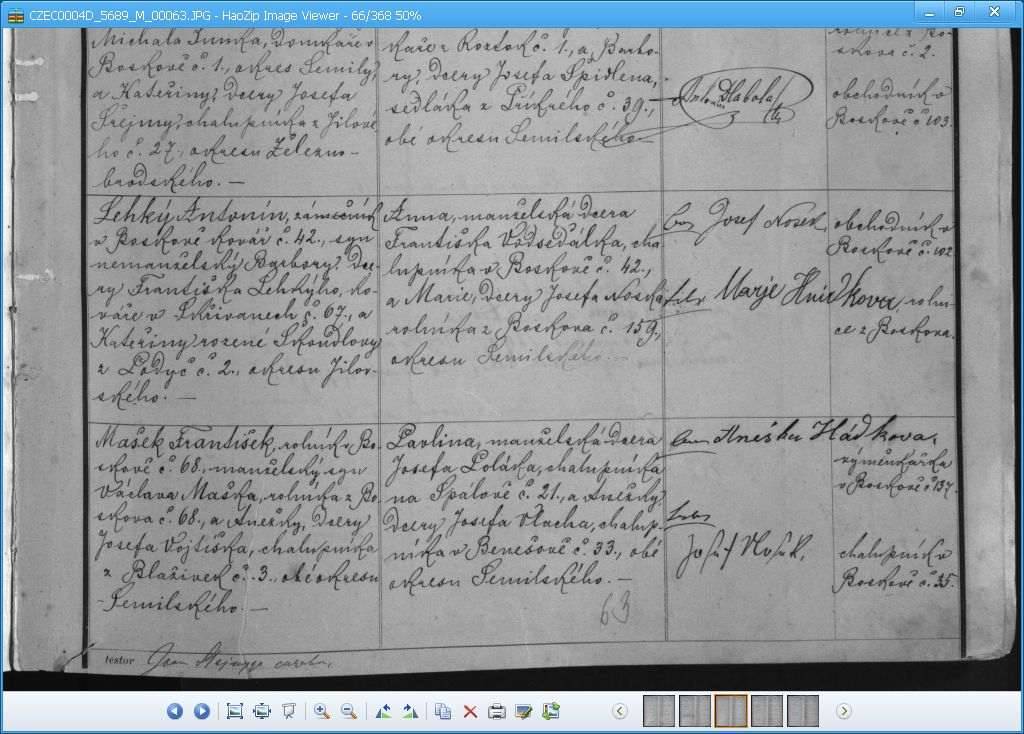 CZEC0004D_5689_M_00063.JPG - HaoZip Image Viewer - 66/368 50%
Boskově č. 1., okres Semily,
a Kateřiny, dcery Josefa
chalupníka z Jilové-
ho č. 27., okresu Železno-
brodského. —
kaře z Roztok č. 1., a Barbo-
ry, dcery Josefa Špidlena,
sedláka z Příkrého č. 39.,
obé okresu Semilského
Antonín Hlabola
skova č. 2.
obchodník v
Boskově č 103.
Lehký Antonín, zámečník
v Boskově kovář č. 42., syn
nemanželský Barbory, dce-
ry Františka Lehkýho, ko-
váře v Skřivanech č. 67., a
Kateřiny rozené Škoudlovy
č. 2., okresu Jilov-
ského. —
Anna, manželská dcera
Františka Vodsedálka, cha-
lupníka v Boskově č. 42.,
a Marie, dcery Josefa Noska
rolníka z Boskova č. 159.,
okresu Semilského. —
Josef Nosek,
obchodník v
Boskově č. 102
Marje Hnídkova, rolni-
ce z Boskova.
Mašek František, rolník v Bo-
skově č. 68., manželský syn
Václava Maška, rolníka z Bo-
skova č. 68., a Anežky, dcery
Josefa Vojtíška, chalupníka
z Blažívek č. 3., obé okresu
Semilského. —
Pavlina, manželská dcera
Josefa Poláka, chalupníka
na Spálově č. 21., a Anežky,
dcery Josefa Vlacha, chalup-
níka v Benešově č. 33., obé
okresu Semilského. —
63
Anéška Hádkova,
výměnkářka
v Boskově č 137.
Josef
chalupník v
Boskově č. 35.
testor
Jan